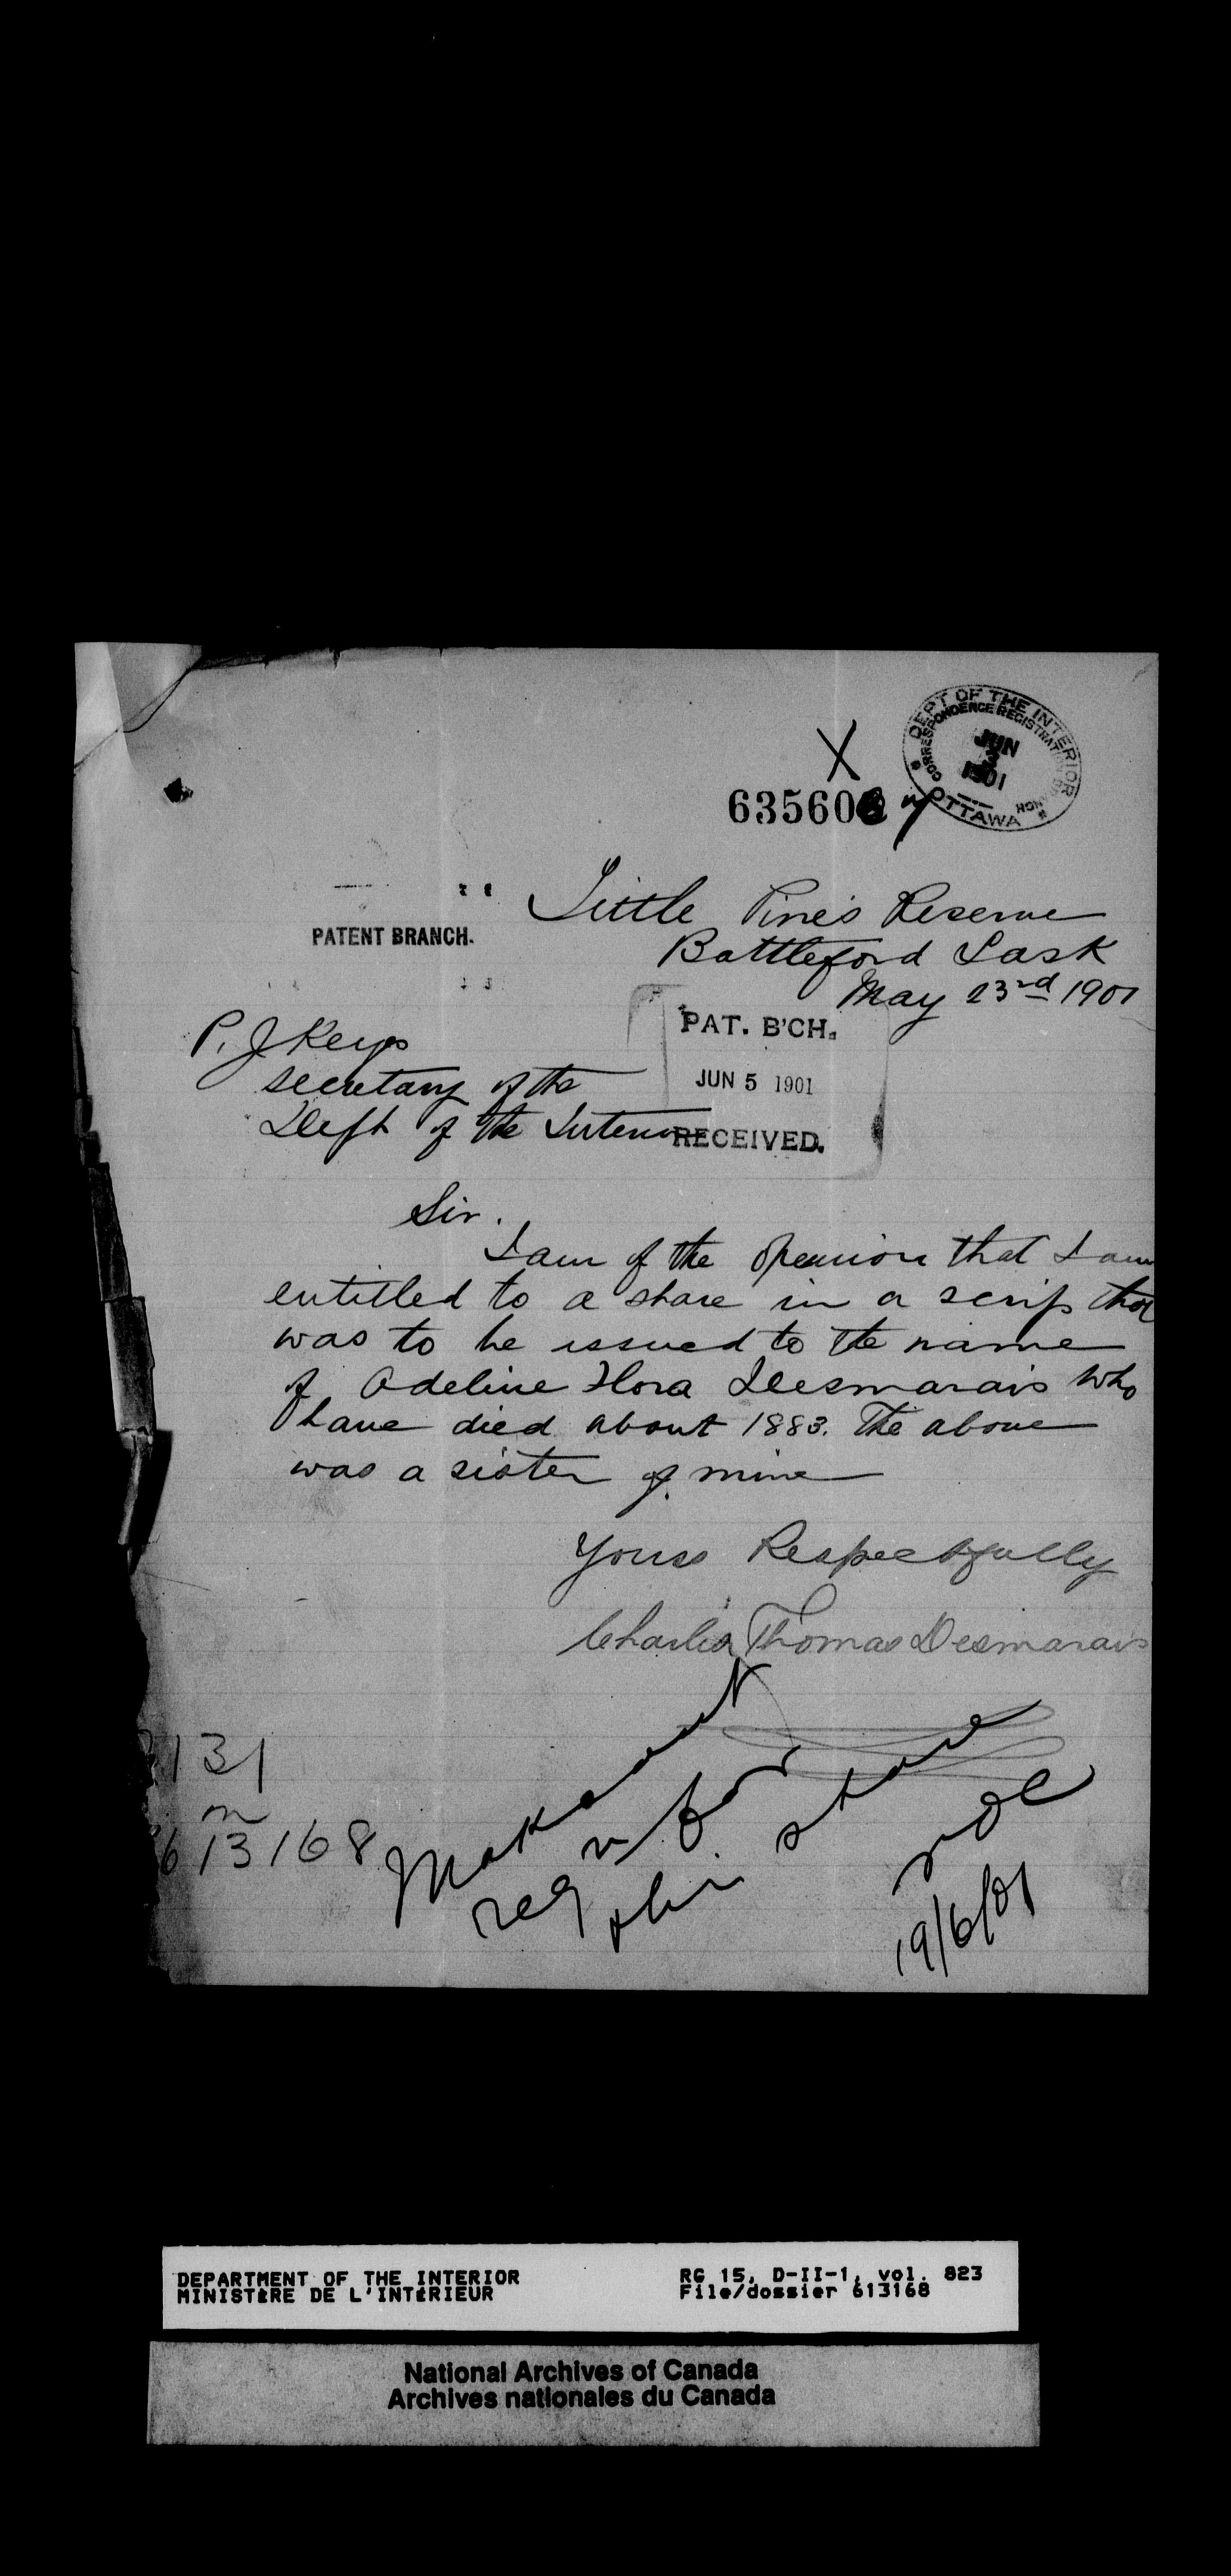 X
DEPT OF THE INTERIOR
CORRESPONDENCE REGISTRATION BRANCH
JUN
3
1901
OTTAWA
635606
Little Pine's Reserve
PATENT BRANCH.
Battleford Sask
May 23rd 1901
PAT. B'CH.
P. J Keys
JUN 5 1901
secretary of the
Dept of the Interior
RECEIVED.
Sir.
I am of the openion that I am
entitled to a share in a scrip that
was to be issued to the name
of Adeline Flora Desmarais who
have died about 1883. The above
was a sister of mine
Yours Respectfully
Charles Thomas Desmarais
131
m
613168
Make out
req for
this share
19/6/01
DEPARTMENT OF THE INTERIOR
MINISTÈRE DE L'INTÉRIEUR
RG 15, D-II-1, vol. 823
File/dossier 613168
National Archives of Canada
Archives nationales du Canada